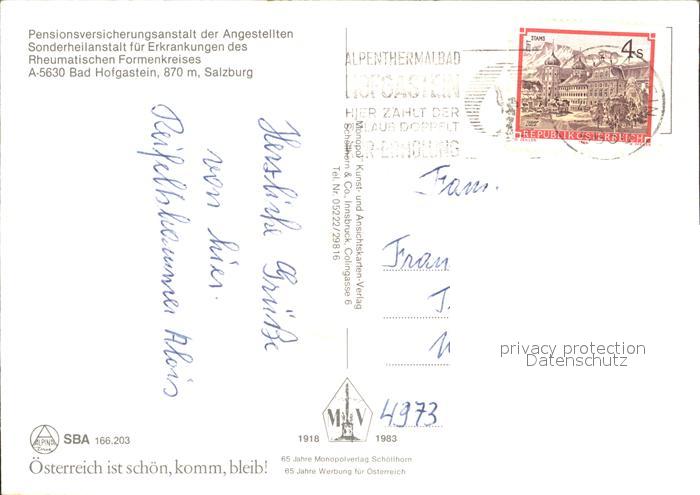 Pensionsversicherungsanstalt der Angestellten
Sonderheilanstalt für Erkrankungen des
Rheumatischen Formenkreises
A-5630 Bad Hofgastein, 870 m, Salzburg
ALPENTHERMALBAD
HOFGASTEIN
HIER ZÄHLT DER
URLAUB DOPPELT
STIFT STAMS
4s
REPUBLIK ÖSTERREICH
Herzliche Grüße
von hier.
Alois
Monopol Kunst- und Ansichtskarten-Verlag
Schöllhorn & Co., Innsbruck, Colingasse 6
Tel. Nr. 05222/29816
Fam.
Fran
J.
4973
privacy protection
Datenschutz
M V
1918 1983
65 Jahre Monopolverlag Schöllhorn
65 Jahre Werbung für Österreich
ALPINA
SBA 166.203
Österreich ist schön, komm, bleib!